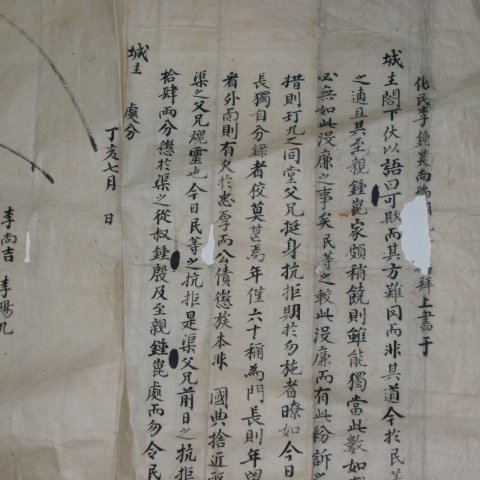 化民李鍾昊尚瑞 拜上書于
城主閤下伏以語曰可欺而其方難罔而非其道今於民等
之適且其至親鍾崑家頗稍饒則雖能獨當此數如
必無如此沒廉之事矣民等之較此沒廉而有此紛訴之
措則玎九之同堂父兄挺身抗拒期於勿施者瞭如今日
長獨自分錄者俟莫甚焉年僅六十稱為門長則年
者外面則有欠於忠厚而公債懲族本非 國典捨近
渠之父兄魂靈也今日民等之抗拒是渠父兄前日之抗拒
拾肆兩分懲於渠之從叔鍾殷及至親鍾崑處而勿令民
城主 處分
丁亥七月 日
李尚吉 李陽九